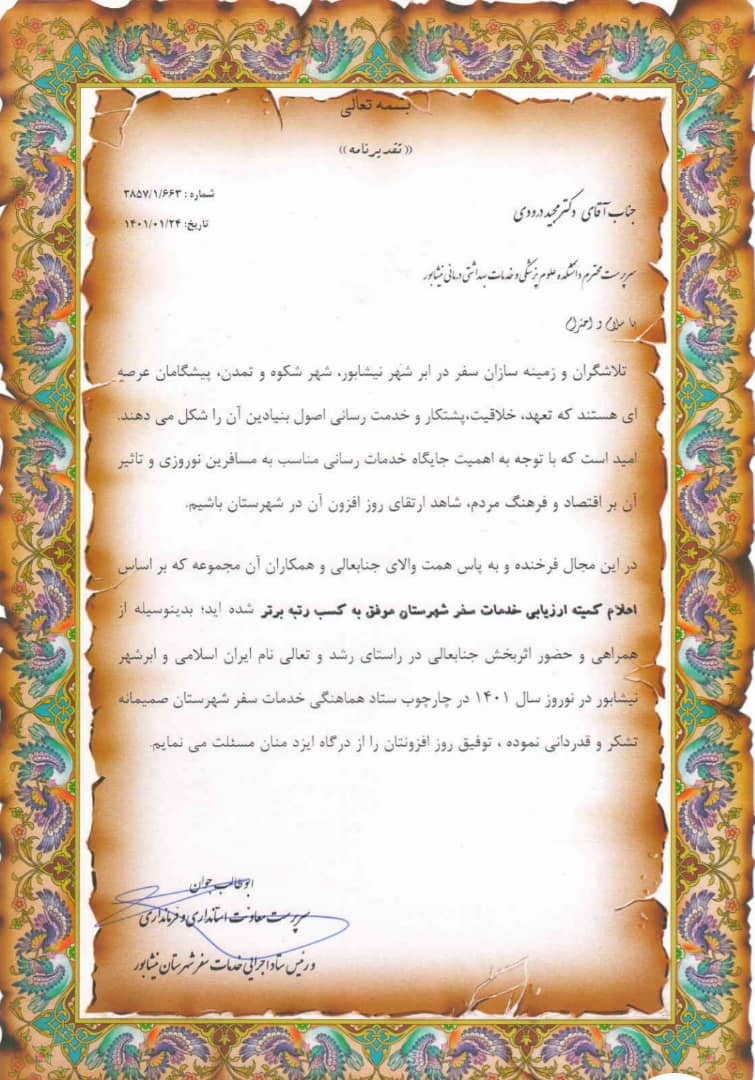 بسمه تعالی
(( تقدیرنامه ))
شماره : ۳۸۵۷/۱/۶۶۳
تاریخ: ۱۴۰۱/۰۱/۲۴
جناب آقای دکتر مجید درودی
سرپرست محترم دانشکده علوم پزشکی و خدمات بهداشتی درمانی نیشابور
با سلام و احترام
تلاشگران و زمینه سازان سفر در ابر شهر نیشابور، شهر شکوه و تمدن، پیشگامان عرصه
ای هستند که تعهد، خلاقیت،پشتکار و خدمت رسانی اصول بنیادین آن را شکل می دهند.
امید است که با توجه به اهمیت جایگاه خدمات رسانی مناسب به مسافرین نوروزی و تاثیر
آن بر اقتصاد و فرهنگ مردم، شاهد ارتقای روز افزون آن در شهرستان باشیم.
در این مجال فرخنده و به پاس همت والای جنابعالی و همکاران آن مجموعه که بر اساس
اعلام کمیته ارزیابی خدمات سفر شهرستان موفق به کسب رتبه برتر شده اید؛ بدینوسیله از
همراهی و حضور اثربخش جنابعالی در راستای رشد و تعالی نام ایران اسلامی و ابرشهر
نیشابور در نوروز سال ۱۴۰۱ در چارچوب ستاد هماهنگی خدمات سفر شهرستان صمیمانه
تشکر و قدردانی نموده ، توفیق روز افزونتان را از درگاه ایزد منان مسئلت می نمایم.
ابوطالب جوان
سرپرست معاونت استانداری و فرمانداری
و رئیس ستاد اجرائی خدمات سفر شهرستان نیشابور